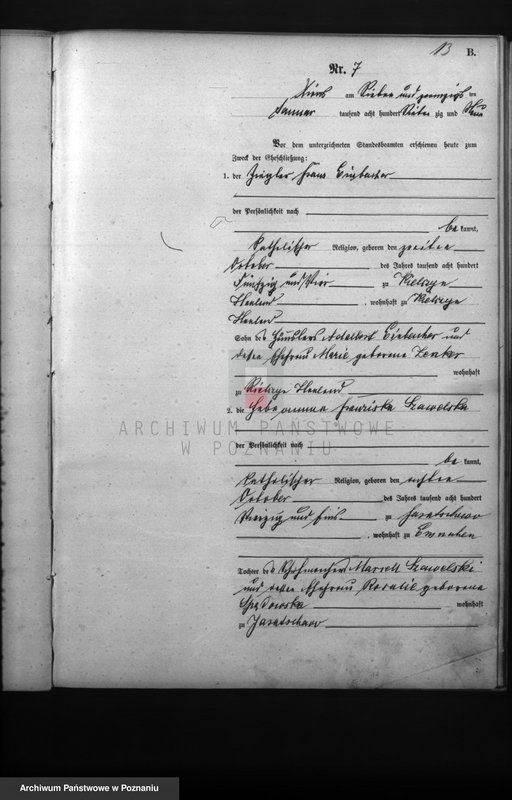 13
B.
Nr. 7
am Sieben und zwanzigsten
Januar tausend acht hundert Sieben zig und
Vor dem unterzeichneten Standesbeamten erschienen heute zum
Zweck der Eheschließung:
1. der Ziegler Franz Einbacher
der Persönlichkeit nach
be kannt,
Katholischer Religion, geboren den zweiten
October des Jahres tausend acht hundert
Fünfzig und Vier zu
Hauland, wohnhaft zu
Hauland
Sohn des Häuslers Adalbert Einbacher und
dessen Ehefrau Marie geborene
wohnhaft
zu Hauland
2. die Hebeamme Franziska Szawelska
ARCHIWUM PAŃSTWOWE
W POZNANIU
der Persönlichkeit nach
be kannt,
Katholischer Religion, geboren den achten
October des Jahres tausend acht hundert
Vierzig und fünf zu
, wohnhaft zu
Tochter des Marcell Szawelski
und dessen Ehefrau Rosalie geborene
wohnhaft
zu
Archiwum Państwowe w Poznaniu